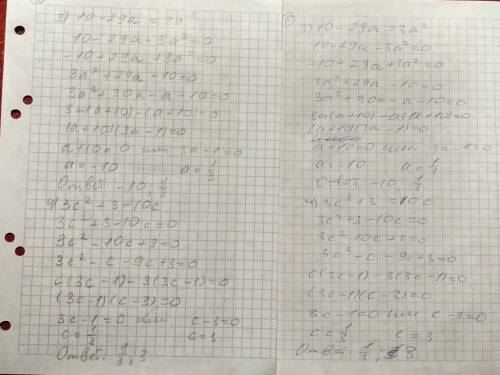 3) 10 - 29a = 3a²
10 - 29a - 3a² = 0
-10 + 29a + 3a² = 0
3a² + 29a - 10 = 0
3a² + 30a - a - 10 = 0
3a(a+10) - (a+10) = 0
(a+10)(3a-1) = 0
a+10=0 или 3a-1=0
a = -10 a = 1/3
Ответ: -10; 1/3
4) 3c² + 3 = 10c
3c² + 3 - 10c = 0
3c² - 10c + 3 = 0
3c² - c - 9c + 3 = 0
c(3c-1) - 3(3c-1) = 0
(3c-1)(c-3) = 0
3c-1=0 или c-3=0
c = 1/3 c = 3
Ответ: 1/3; 3
3) 10 - 29a = 3a²
10 - 29a - 3a² = 0
-10 + 29a + 3a² = 0
3a² + 29a - 10 = 0
3a² + 30a - a - 10 = 0
(a+10)(3a-1) = 0
a+10=0 или 3a-1=0
a = -10 a = 1/3
Ответ -10; 1/3
4) 3c² + 3 = 10c
3c² + 3 - 10c = 0
3c² - 10c + 3 = 0
3c² - c - 9c + 3 = 0
c(3c-1) - 3(3c-1) = 0
(3c-1)(c-3) = 0
3c-1=0 или c-3=0
c = 1/3 c = 3
Ответ 1/3; 3